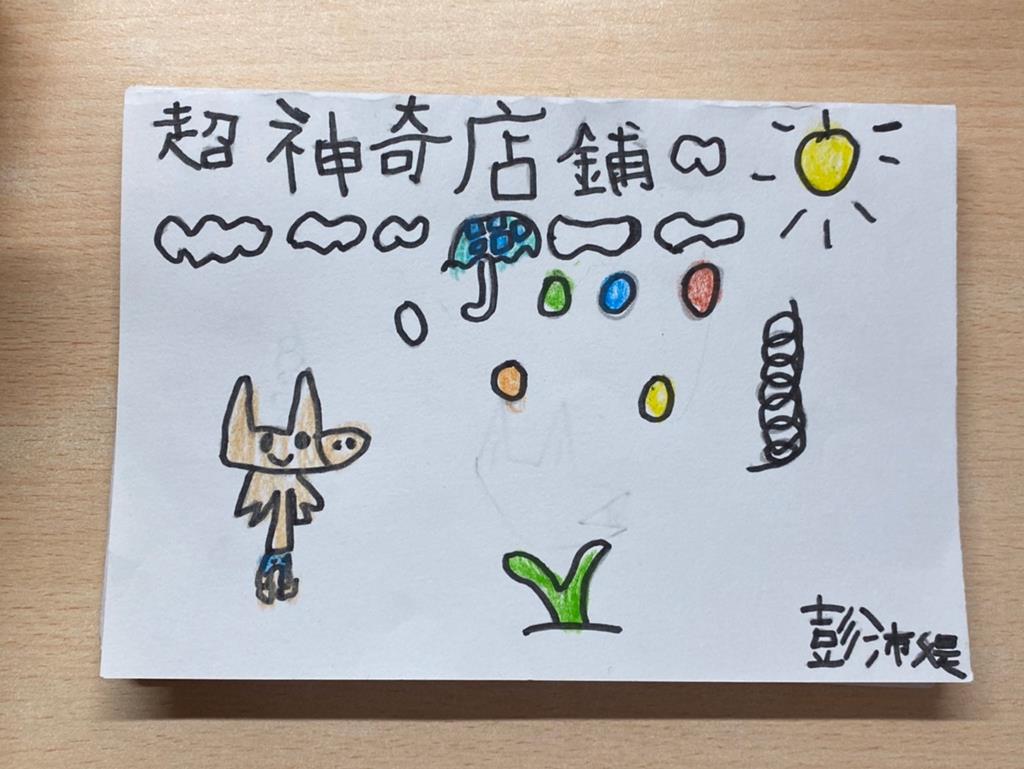 超神奇店鋪
彭沛媞